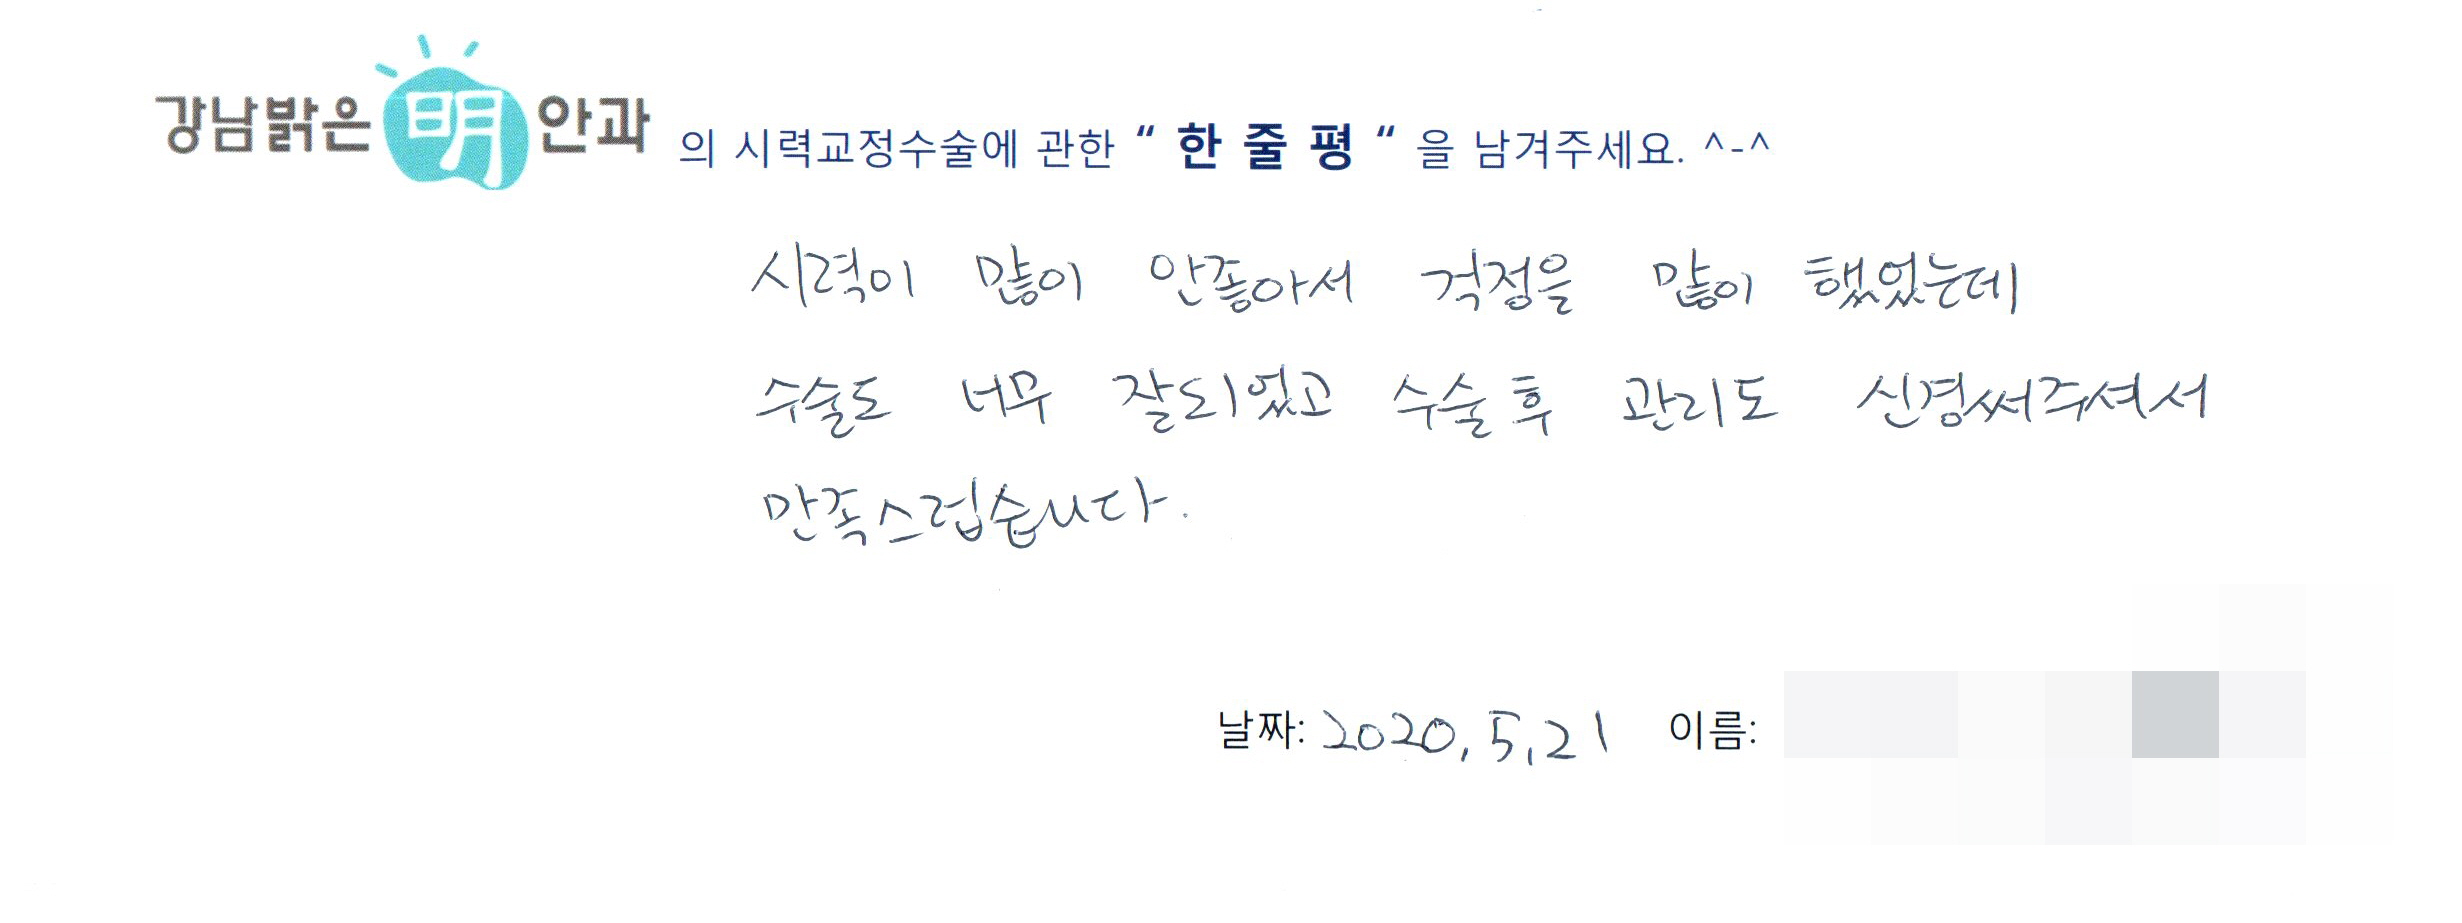 강남밝은 明 안과 의 시력교정수술에 관한 “ 한 줄 평 “ 을 남겨주세요. ^-^
시력이 많이 안좋아서 걱정을 많이 했었는데
수술도 너무 잘되었고 수술 후 관리도 신경써주셔서
만족스럽습니다.
날짜: 2020, 5, 21 이름: